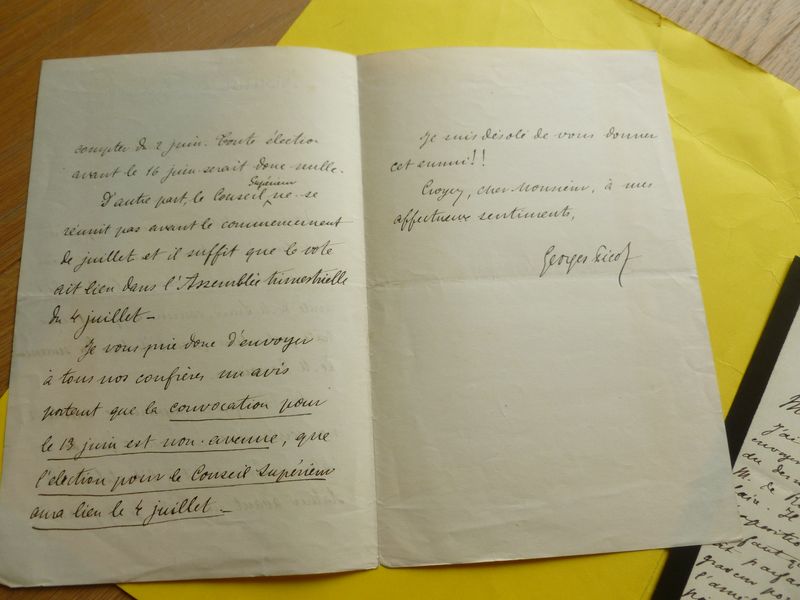 compter du 2 juin. Toute élection
avant le 16 juin serait donc nulle.
D'autre part, le Conseil Supérieur ne se
réunit pas avant le commencement
de juillet et il suffit que le vote
ait lieu dans l'Assemblée trimestrielle
du 4 juillet –
Je vous prie donc d'envoyer
à tous nos confrères un avis
portant que la convocation pour
le 13 juin est non-avenue, que
l'élection pour le Conseil Supérieur
aura lieu le 4 juillet –
Je suis désolé de vous donner
cet ennui!!
Croyez, cher Monsieur, à mes
affectueux sentiments,
Georges Picot
M
J'ai
envoye
du der
M. de R
laire. Je
faut
parfa
graveur po
l'amé